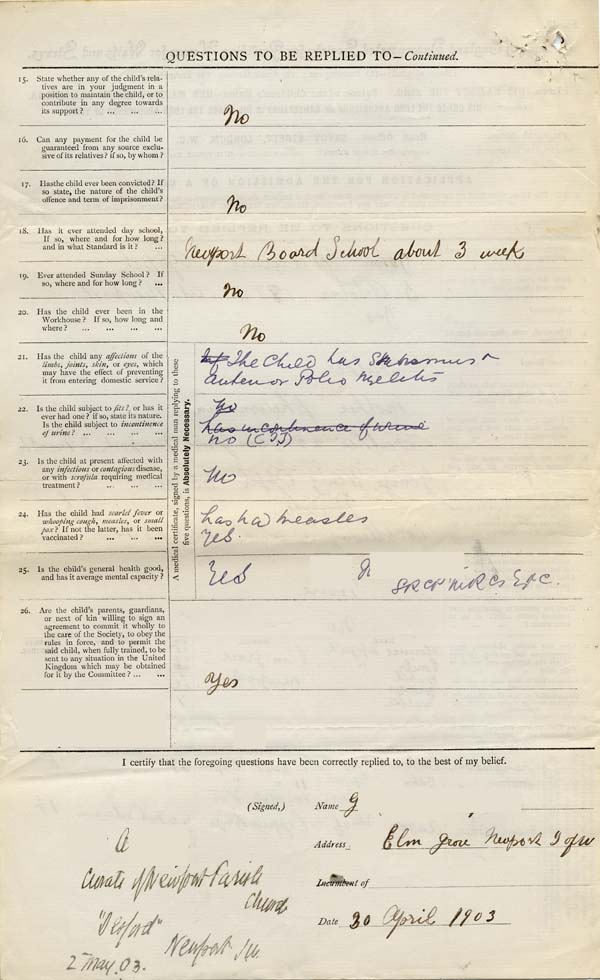 QUESTIONS TO BE REPLIED TO—Continued.
15. State whether any of the child's rela-
tives are in your judgment in a
position to maintain the child, or to
contribute in any degree towards
its support? ... ... ...
No
16. Can any payment for the child be
guaranteed from any source exclu-
sive of its relatives? if so, by whom?
17. Hasthe child ever been convicted? If
so state, the nature of the child's
offence and term of imprisonment?
No
18. Has it ever attended day school,
If so, where and for how long?
and in what Standard is it? ...
Newport Board School about 3 weeks
19. Ever attended Sunday School? If
so, where and for how long? ...
No
20. Has the child ever been in the
Workhouse? If so, how long and
where? ... ... ... ...
No
A medical certificate, signed by a medical man replying to these
five questions, is Absolutely Necessary.
21. Has the child any affections of the
limbs, joints, skin, or eyes, which
may have the effect of preventing
it from entering domestic service?
The Child has
anterior Polio Myelitis
22. Is the child subject to fits?, or has it
ever had one? if so, state its nature.
Is the child subject to incontinence
of urine? ... ... ... ...
no
has incontinence of urine
no
23. Is the child at present affected with
any infectious or contagious disease,
or with scrofula requiring medical
treatment? ... ... ...
No
24. Has the child had scarlet fever or
whooping cough, measles, or small
pox? If not the latter, has it been
vaccinated? ... ... ...
has had measles
yes.
25. Is the child's general health good,
and has it average mental capacity?
Yes
26. Are the child's parents, guardians,
or next of kin willing to sign an
agreement to commit it wholly to
the care of the Society, to obey the
rules in force, and to permit the
said child, when fully trained, to be
sent to any situation in the United
Kingdom which may be obtained
for it by the Committee? ... ...
Yes
I certify that the foregoing questions have been correctly replied to, to the best of my belief.
(Signed,) Name G
Address Elm Grove Newport I of W
Incumbent of
Date 30 April 1903
A
Curate of Newport Parish
Church
Newport I.W.
2 May. 03.